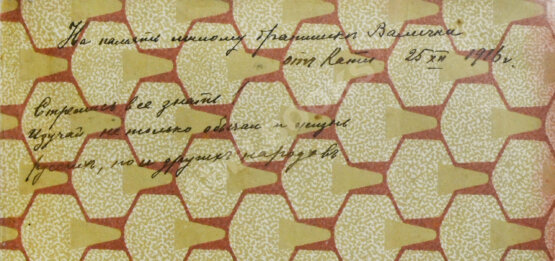 На память милому братишкѣ Валичкѣ
отъ Кати 25 XII 1916 г.
Стремись все знать
Изучай не только обычаи и жизнь
русскихъ, но и другихъ народовъ